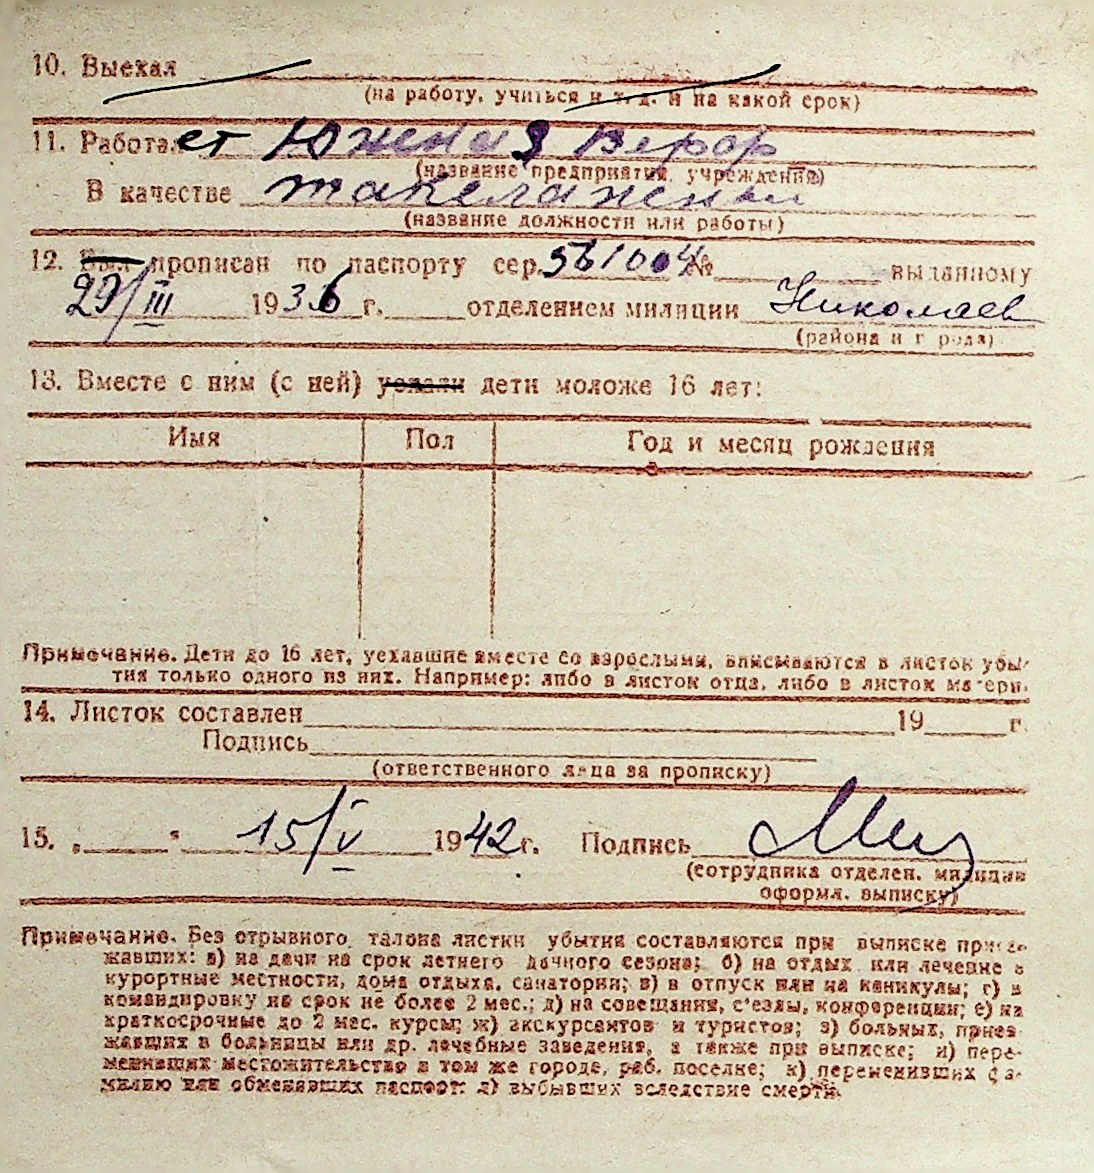 10. Выехал
(на работу, учиться и т. д. и на какой срок)
11. Работает Южная Верфь
(название предприятия, учреждения)
В качестве такелажник
(название должности или работы)
12. Был прописан по паспорту сер. 561004 № выданному
29/III 1936 г. отделением милиции Николаев
(района и города)
13. Вместе с ним (с ней) уехали дети моложе 16 лет:
Имя Пол Год и месяц рождения
Примечание. Дети до 16 лет, уехавшие вместе со взрослыми, вписываются в листок убы-
тия только одного из них. Например: либо в листок отца, либо в листок матери.
14. Листок составлен 19 г.
Подпись
(ответственного лица за прописку)
15. „ " 15/V 1942 г. Подпись
(сотрудника отделен. милиции
оформл. выписку)
Примечание. Без отрывного талона листки убытия составляются при выписке приез-
жавших: а) на дачи на срок летнего дачного сезона; б) на отдых или лечение в
курортные местности, дома отдыха, санатории; в) в отпуск или на каникулы; г) в
командировку на срок не более 2 мес.; д) на совещания, с'езды, конференции; е) на
краткосрочные до 2 мес. курсы; ж) экскурсантов и туристов; з) больных, приез-
жавших в больницы или др. лечебные заведения, а также при выписке; и) пере-
менивших местожительство в том же городе, раб. поселке; к) переменивших фа-
милию или обменявших паспорт; л) выбывших вследствие смерти.